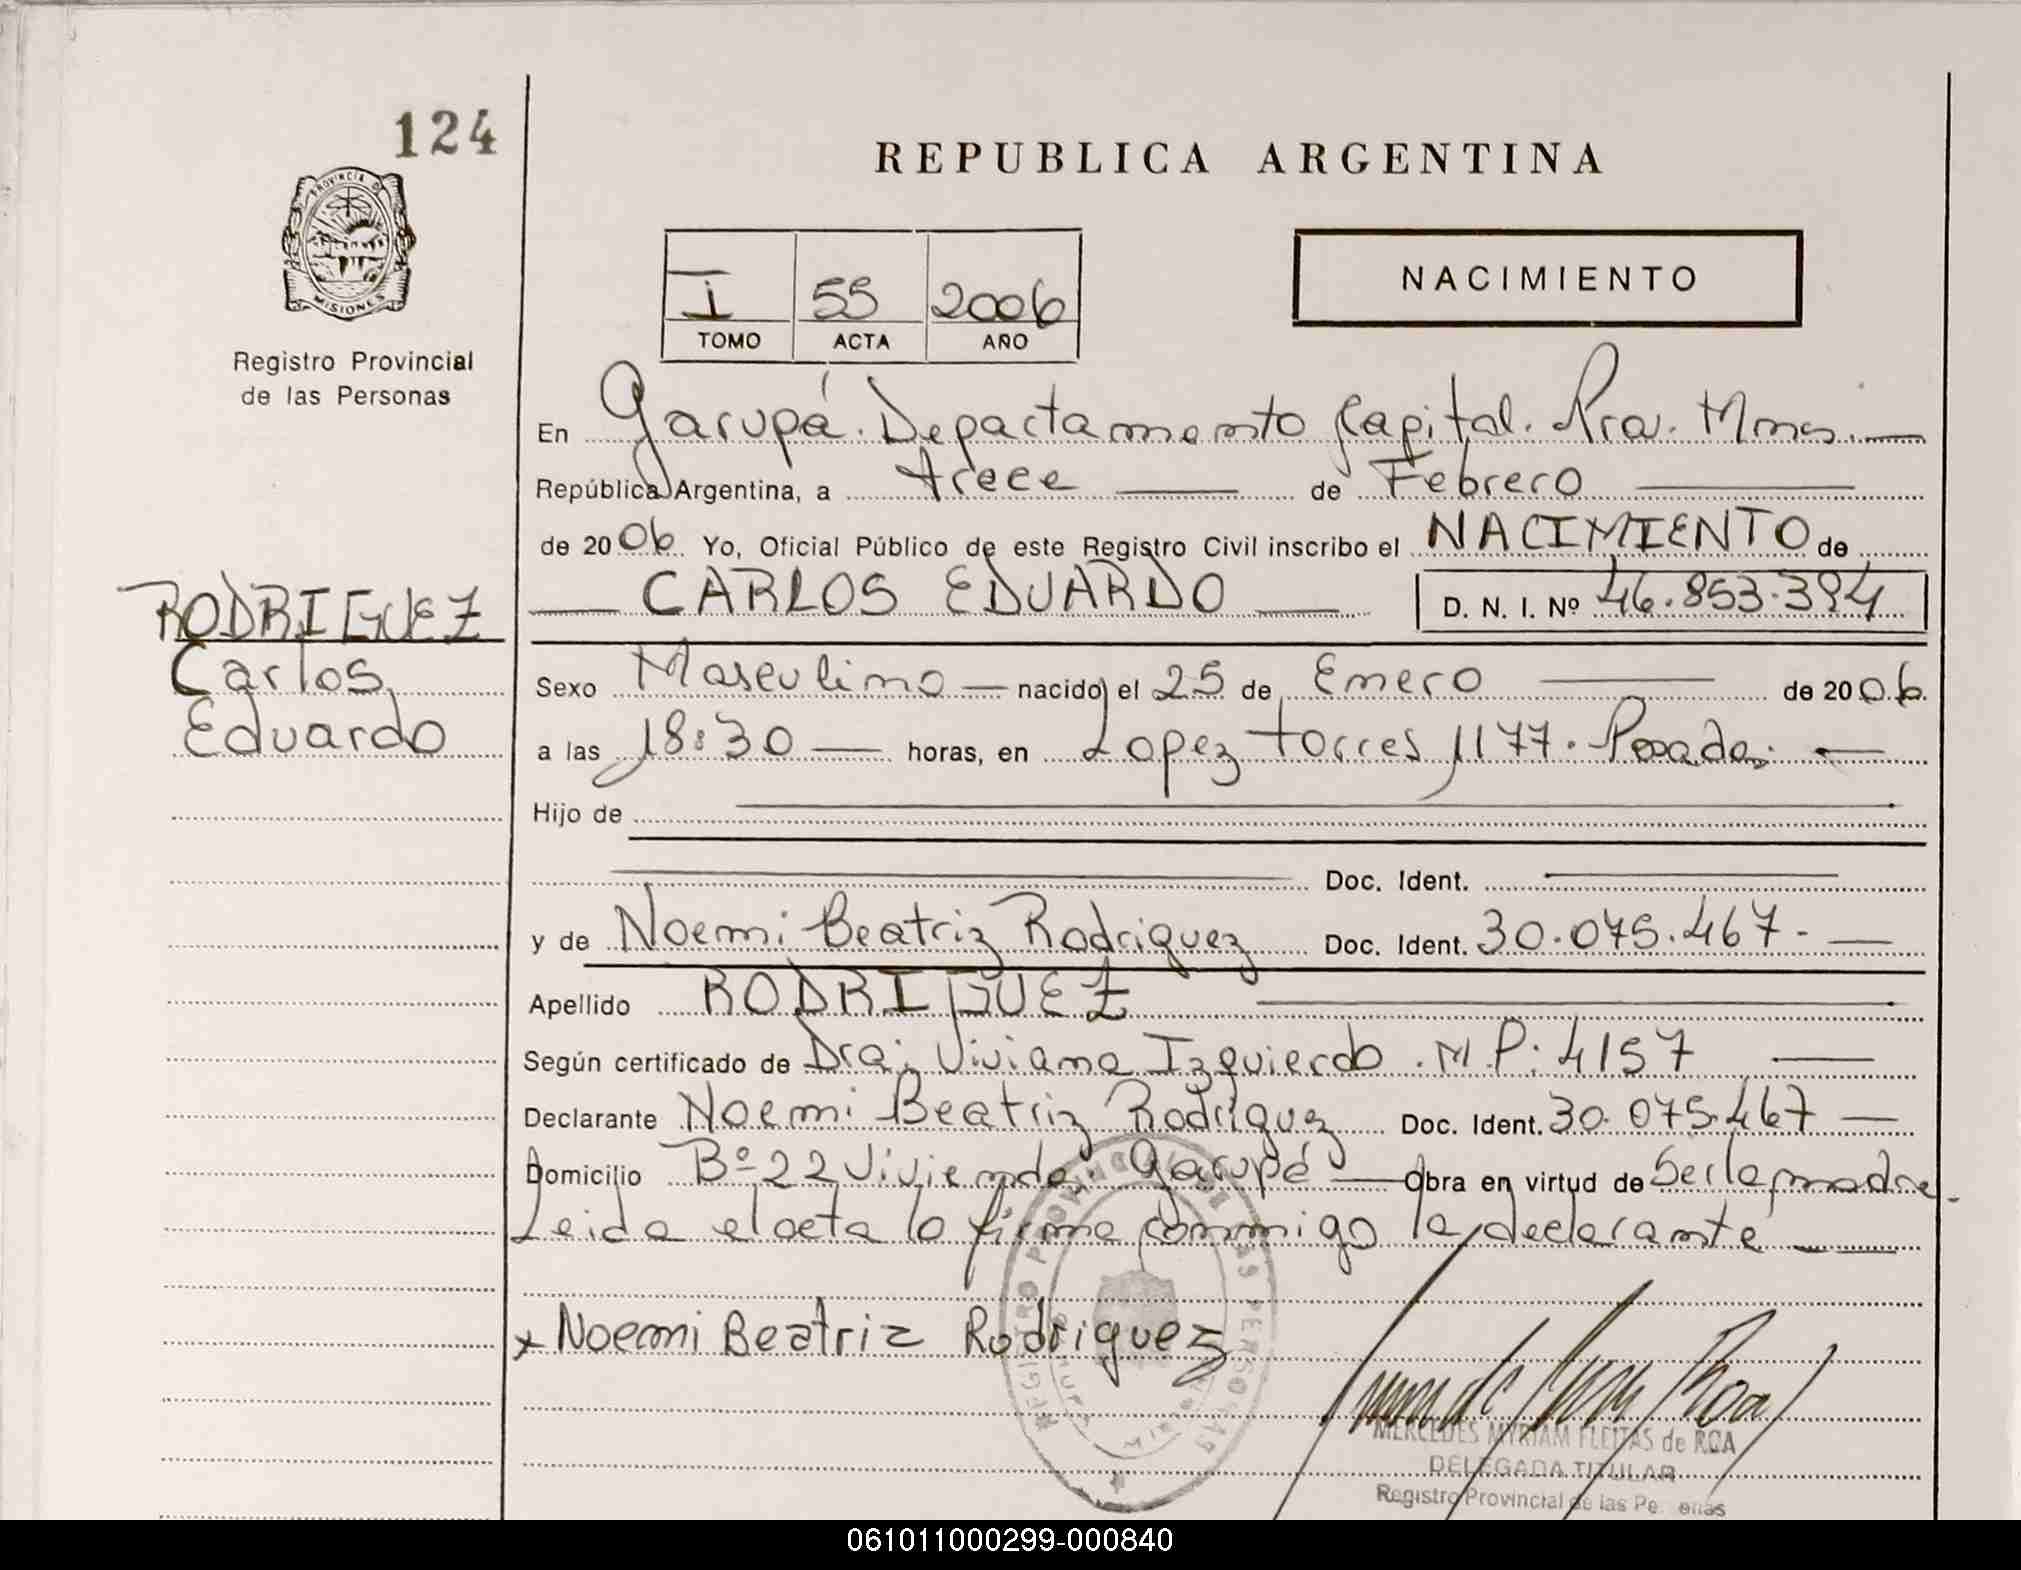 124
REPUBLICA ARGENTINA
PROVINCIA DE
MISIONES
Registro Provincial
de las Personas
I 55 2006
TOMO ACTA AÑO
NACIMIENTO
En Garupá. Departamento Capital. Pcia. Mnes.
República Argentina, a trece de Febrero
de 2006 Yo, Oficial Público de este Registro Civil inscribo el NACIMIENTO de
CARLOS EDUARDO D. N. I. Nº 46.853.394
RODRIGUEZ
Carlos
Eduardo
Sexo Masculino nacido el 25 de Enero de 2006.
a las 18:30 horas, en Lopez torres 1177. Posadas.
Hijo de
Doc. Ident.
y de Noemi Beatriz Rodriguez Doc. Ident. 30.075.467.
Apellido RODRIGUEZ
Según certificado de Dra. Viviana Izquierdo. M.P: 4157
Declarante Noemi Beatriz Rodriguez Doc. Ident. 30.075.467
Domicilio Bº 22 Vivienda. Garupá Obra en virtud de Ser la madre.
Leida el acta lo firma conmigo la declarante
x Noemi Beatriz Rodriguez
MERCEDES MYRIAM FLEITAS de ROA
DELEGADA TITULAR
Registro Provincial de las Pe onas
061011000299-000840